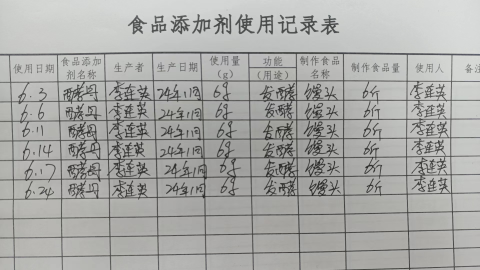 食品添加剂使用记录表
使用日期 食品添加剂名称 生产者 生产日期 使用量（g） 功能（用途） 制作食品名称 制作食品量 使用人 备注
6.3 酵母 李连英 24年1月 6g 发酵 馒头 6斤 李连英
6.6 酵母 李连英 24年1月 6g 发酵 馒头 6斤 李连英
6.11 酵母 李连英 24年1月 6g 发酵 馒头 6斤 李连英
6.14 酵母 李连英 24年1月 6g 发酵 馒头 6斤 李连英
6.17 酵母 李连英 24年1月 6g 发酵 馒头 6斤 李连英
6.24 酵母 李连英 24年1月 6g 发酵 馒头 6斤 李连英